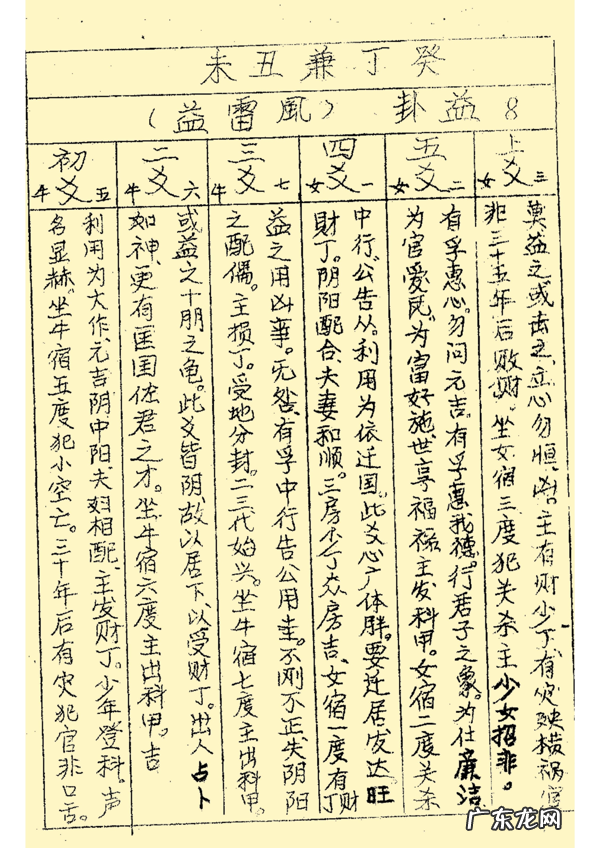 未丑兼丁癸
(益雷風) 卦益 8
上爻 女三
莫益之或击之立心勿恒,凶。主有财少丁,有灾殃横祸官
非三十五年后败财。坐女宿三度犯关杀主少女招非。
五爻 女二
有孚惠心。勿问元吉。有孚惠我德。行君子之象。为仕廉洁
为官爱民,为富好施世享福禄主发科甲。女宿二度关杀
四爻 女一
中行,公告从。利用为依迁国。此爻心广体胖。要迁居发达旺
财丁。阴阳配合、夫妻和顺。三房少丁众房吉、女宿一度有丁财
三爻 牛七
益之用凶事。无咎、有孚中行告公用圭。不刚不正、失阴阳
之配偶。主损丁。受地分封。二三代始兴。坐牛宿七度主出科甲。
二爻 牛六
或益之十朋之龟。此爻皆阴、故以居下、以受财丁。出人占卜
如神、更有匡国佐君之才。坐牛宿六度主出科甲。吉
初爻 牛五
利用为大作、元吉阴中阳、夫妇相配、主发财丁。少年登科。声
名显赫。坐牛宿五度犯小空亡。三十年后有灾犯官非口舌。
广东龙网